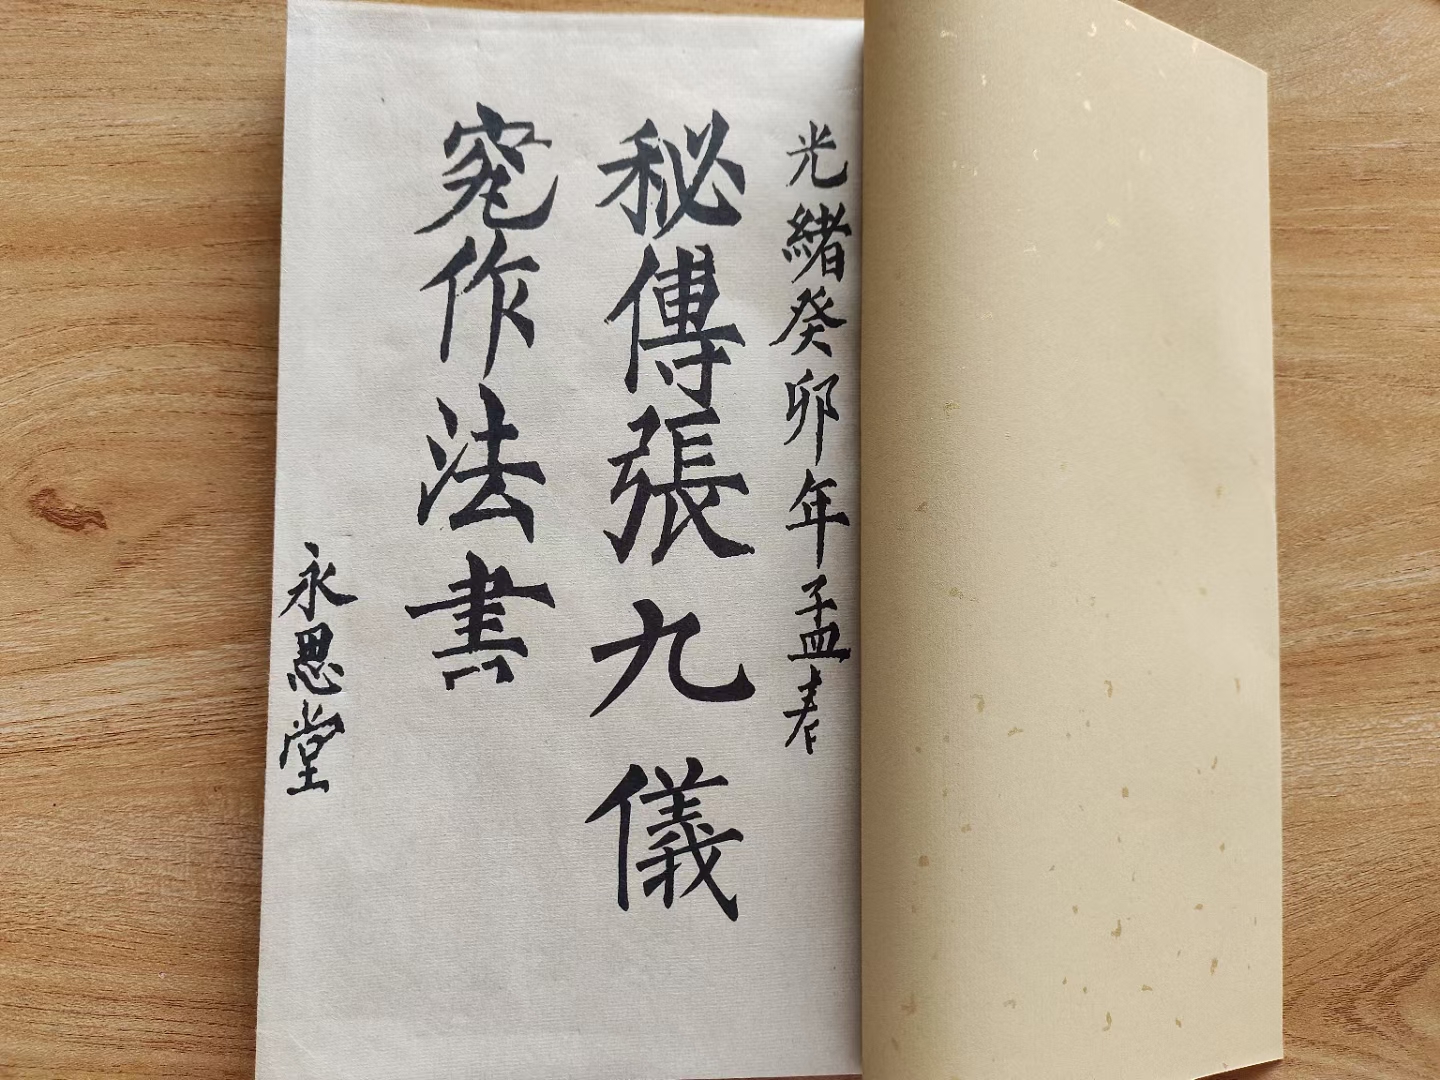 光緒癸卯年孟春
秘傳張九儀
作法書
永思堂